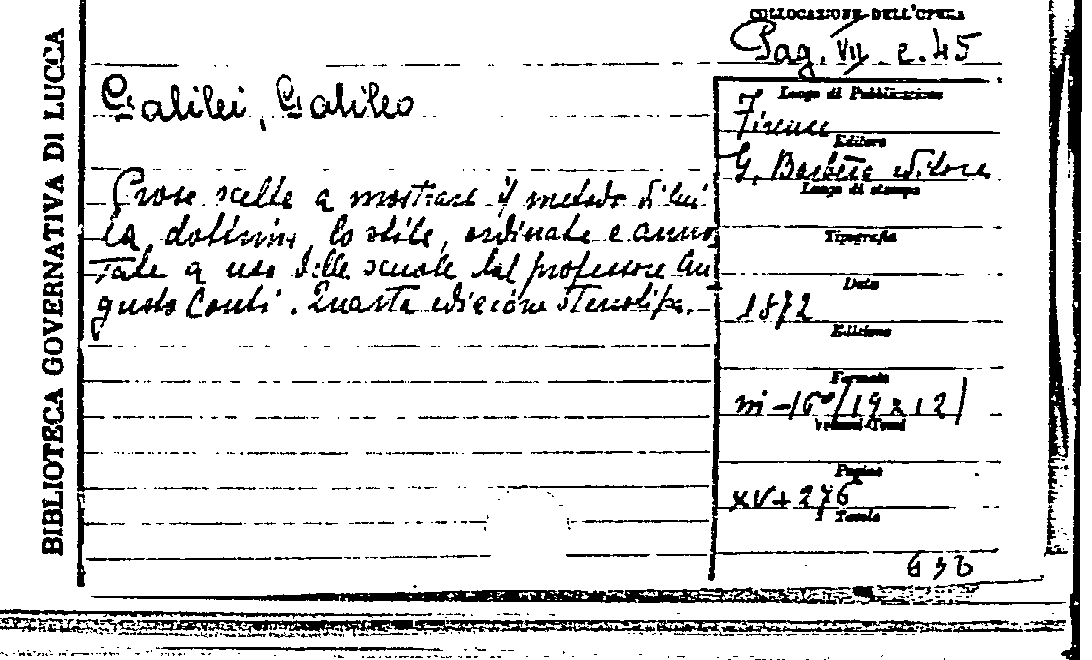 BIBLIOTECA GOVERNATIVA DI LUCCA
COLLOCAZIONE DELL'OPERA
Pag. VII c. 45
Galilei, Galileo
Prose scelte a mostrare il metodo di lui
la dottrina, lo stile, ordinate e anno
tate a uso delle scuole dal professore Au
gusto Conti. Quarta edizione stenotipa.
Luogo di Pubblicazione
Firenze
Editore
G. Barbèra editore
Luogo di stampa
Tipografia
Data
1872
Edizione
Formato
in-16° (19x12)
Volumi-Tomi
Pagine
XV+276
Tavole